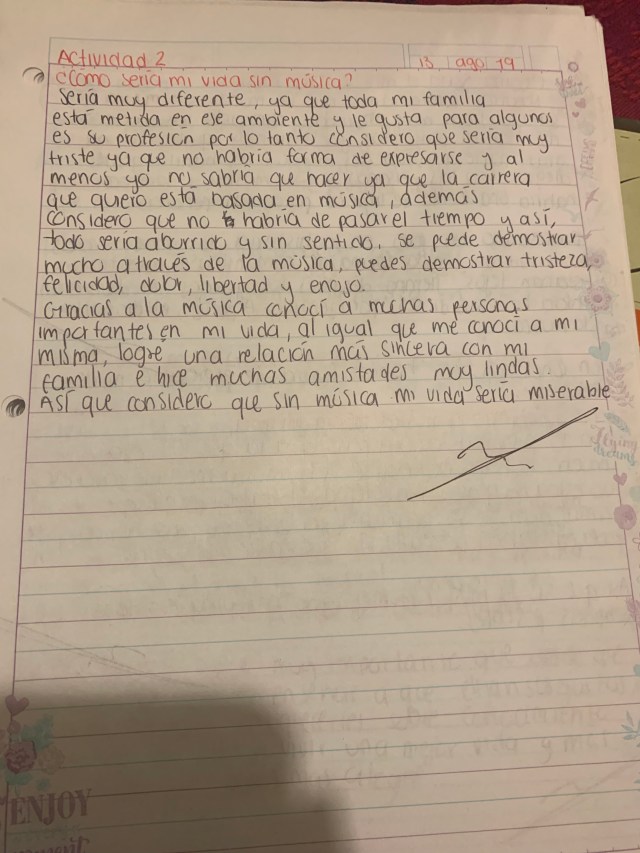 Actividad 2
13 ago 19
¿Cómo sería mi vida sin música?
Sería muy diferente, ya que toda mi familia
está metida en ese ambiente y le gusta para algunos
es su profesión por lo tanto considero que sería muy
triste ya que no habría forma de expresarse y al
menos yo no sabría que hacer ya que la carrera
que quiero está basada en música, además
considero que no habría de pasar el tiempo y así,
todo sería aburrido y sin sentido. se puede demostrar
mucho através de la música, puedes demostrar tristeza,
felicidad, dolor, libertad y enojo.
Gracias a la música conocí a muchas personas
importantes en mi vida, al igual que me conocí a mi
misma, logré una relación más sincera con mi
familia e hice muchas amistades muy lindas.
Así que considero que sin música mi vida sería miserable
ENJOY